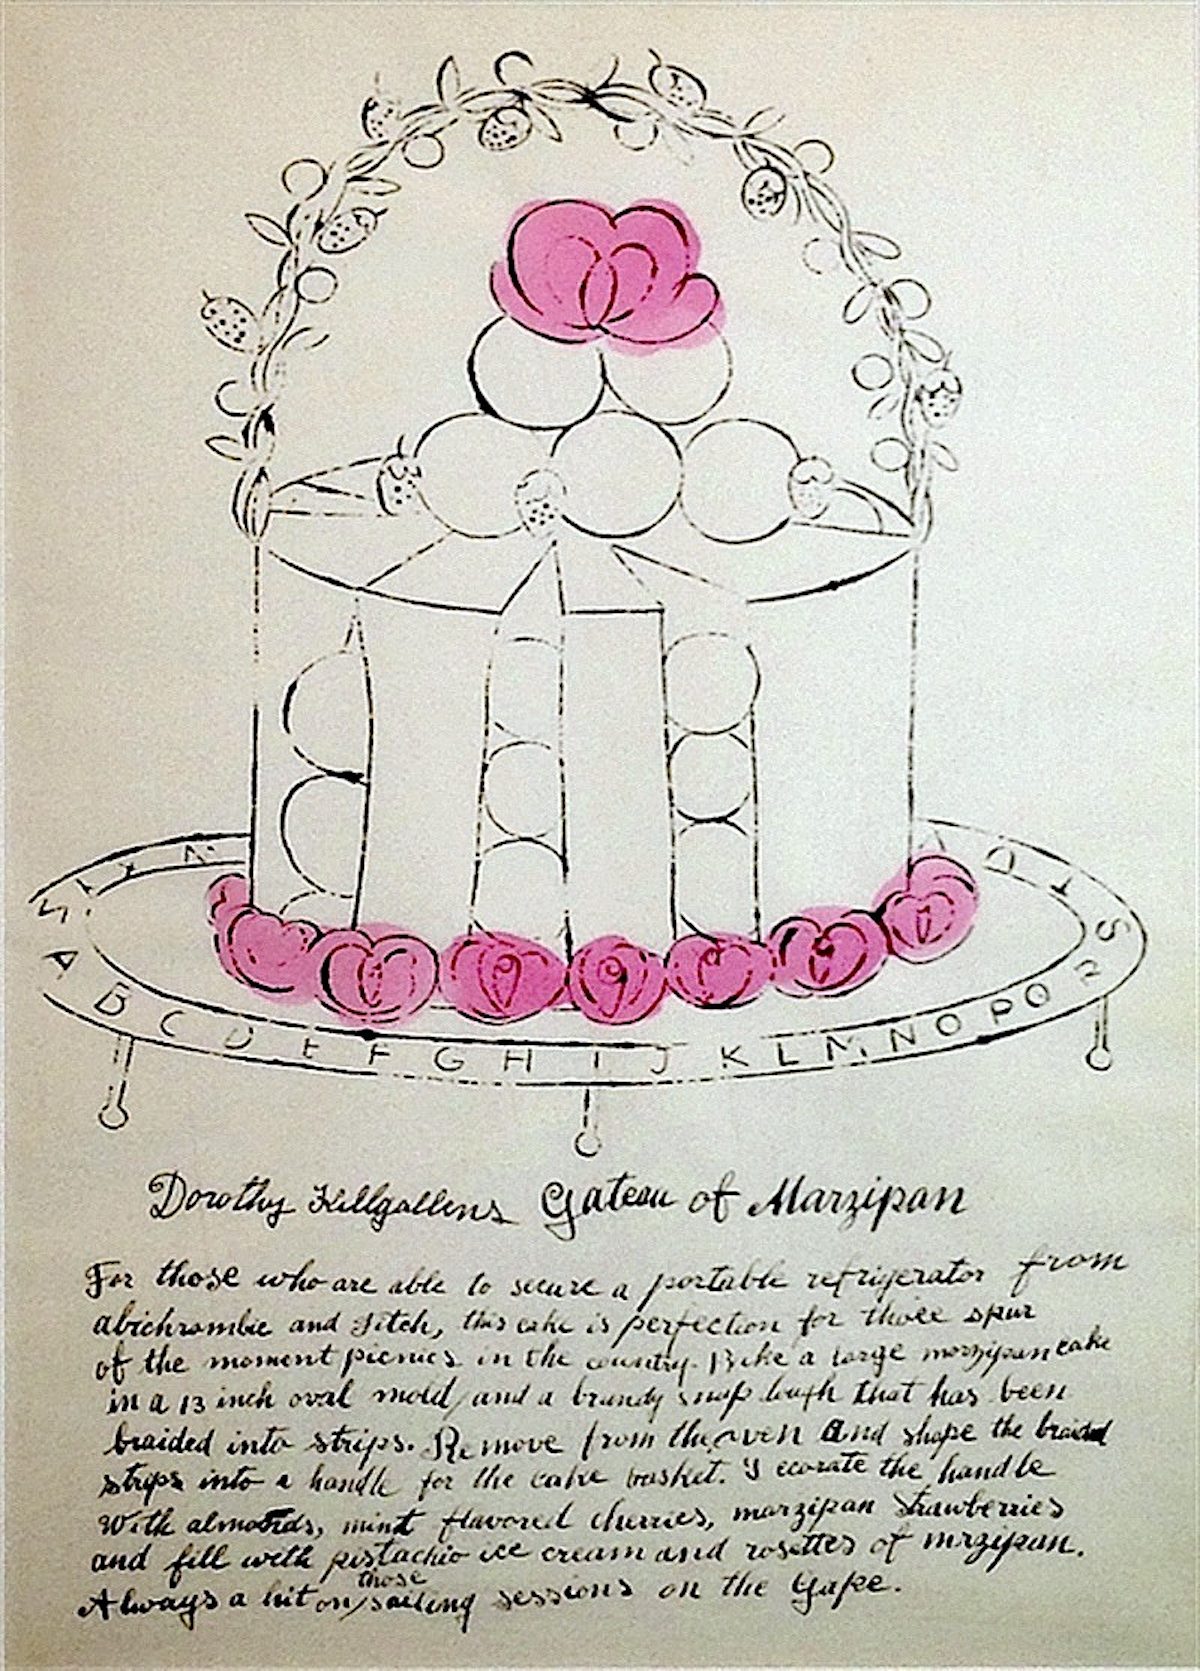 A B C D E F G H I J K L M N O P Q R S T
Dorothy Killgallens Gateau of Marzipan
For those who are able to secure a portable refrigerator from
abichrombie and Fitch, this cake is perfection for those spur
of the moment picnics in the country. Bake a large marzipan cake
in a 13 inch oval mold, and a brandy snap dough that has been
braided into strips. Remove from the oven and shape the braided
strips into a handle for the cake basket. Decorate the handle
With almonds, mint flavored cherries, marzipan strawberries
and fill with pistachio ice cream and rosettes of mrzipan.
Always a hit on those sailing sessions on the Yape.